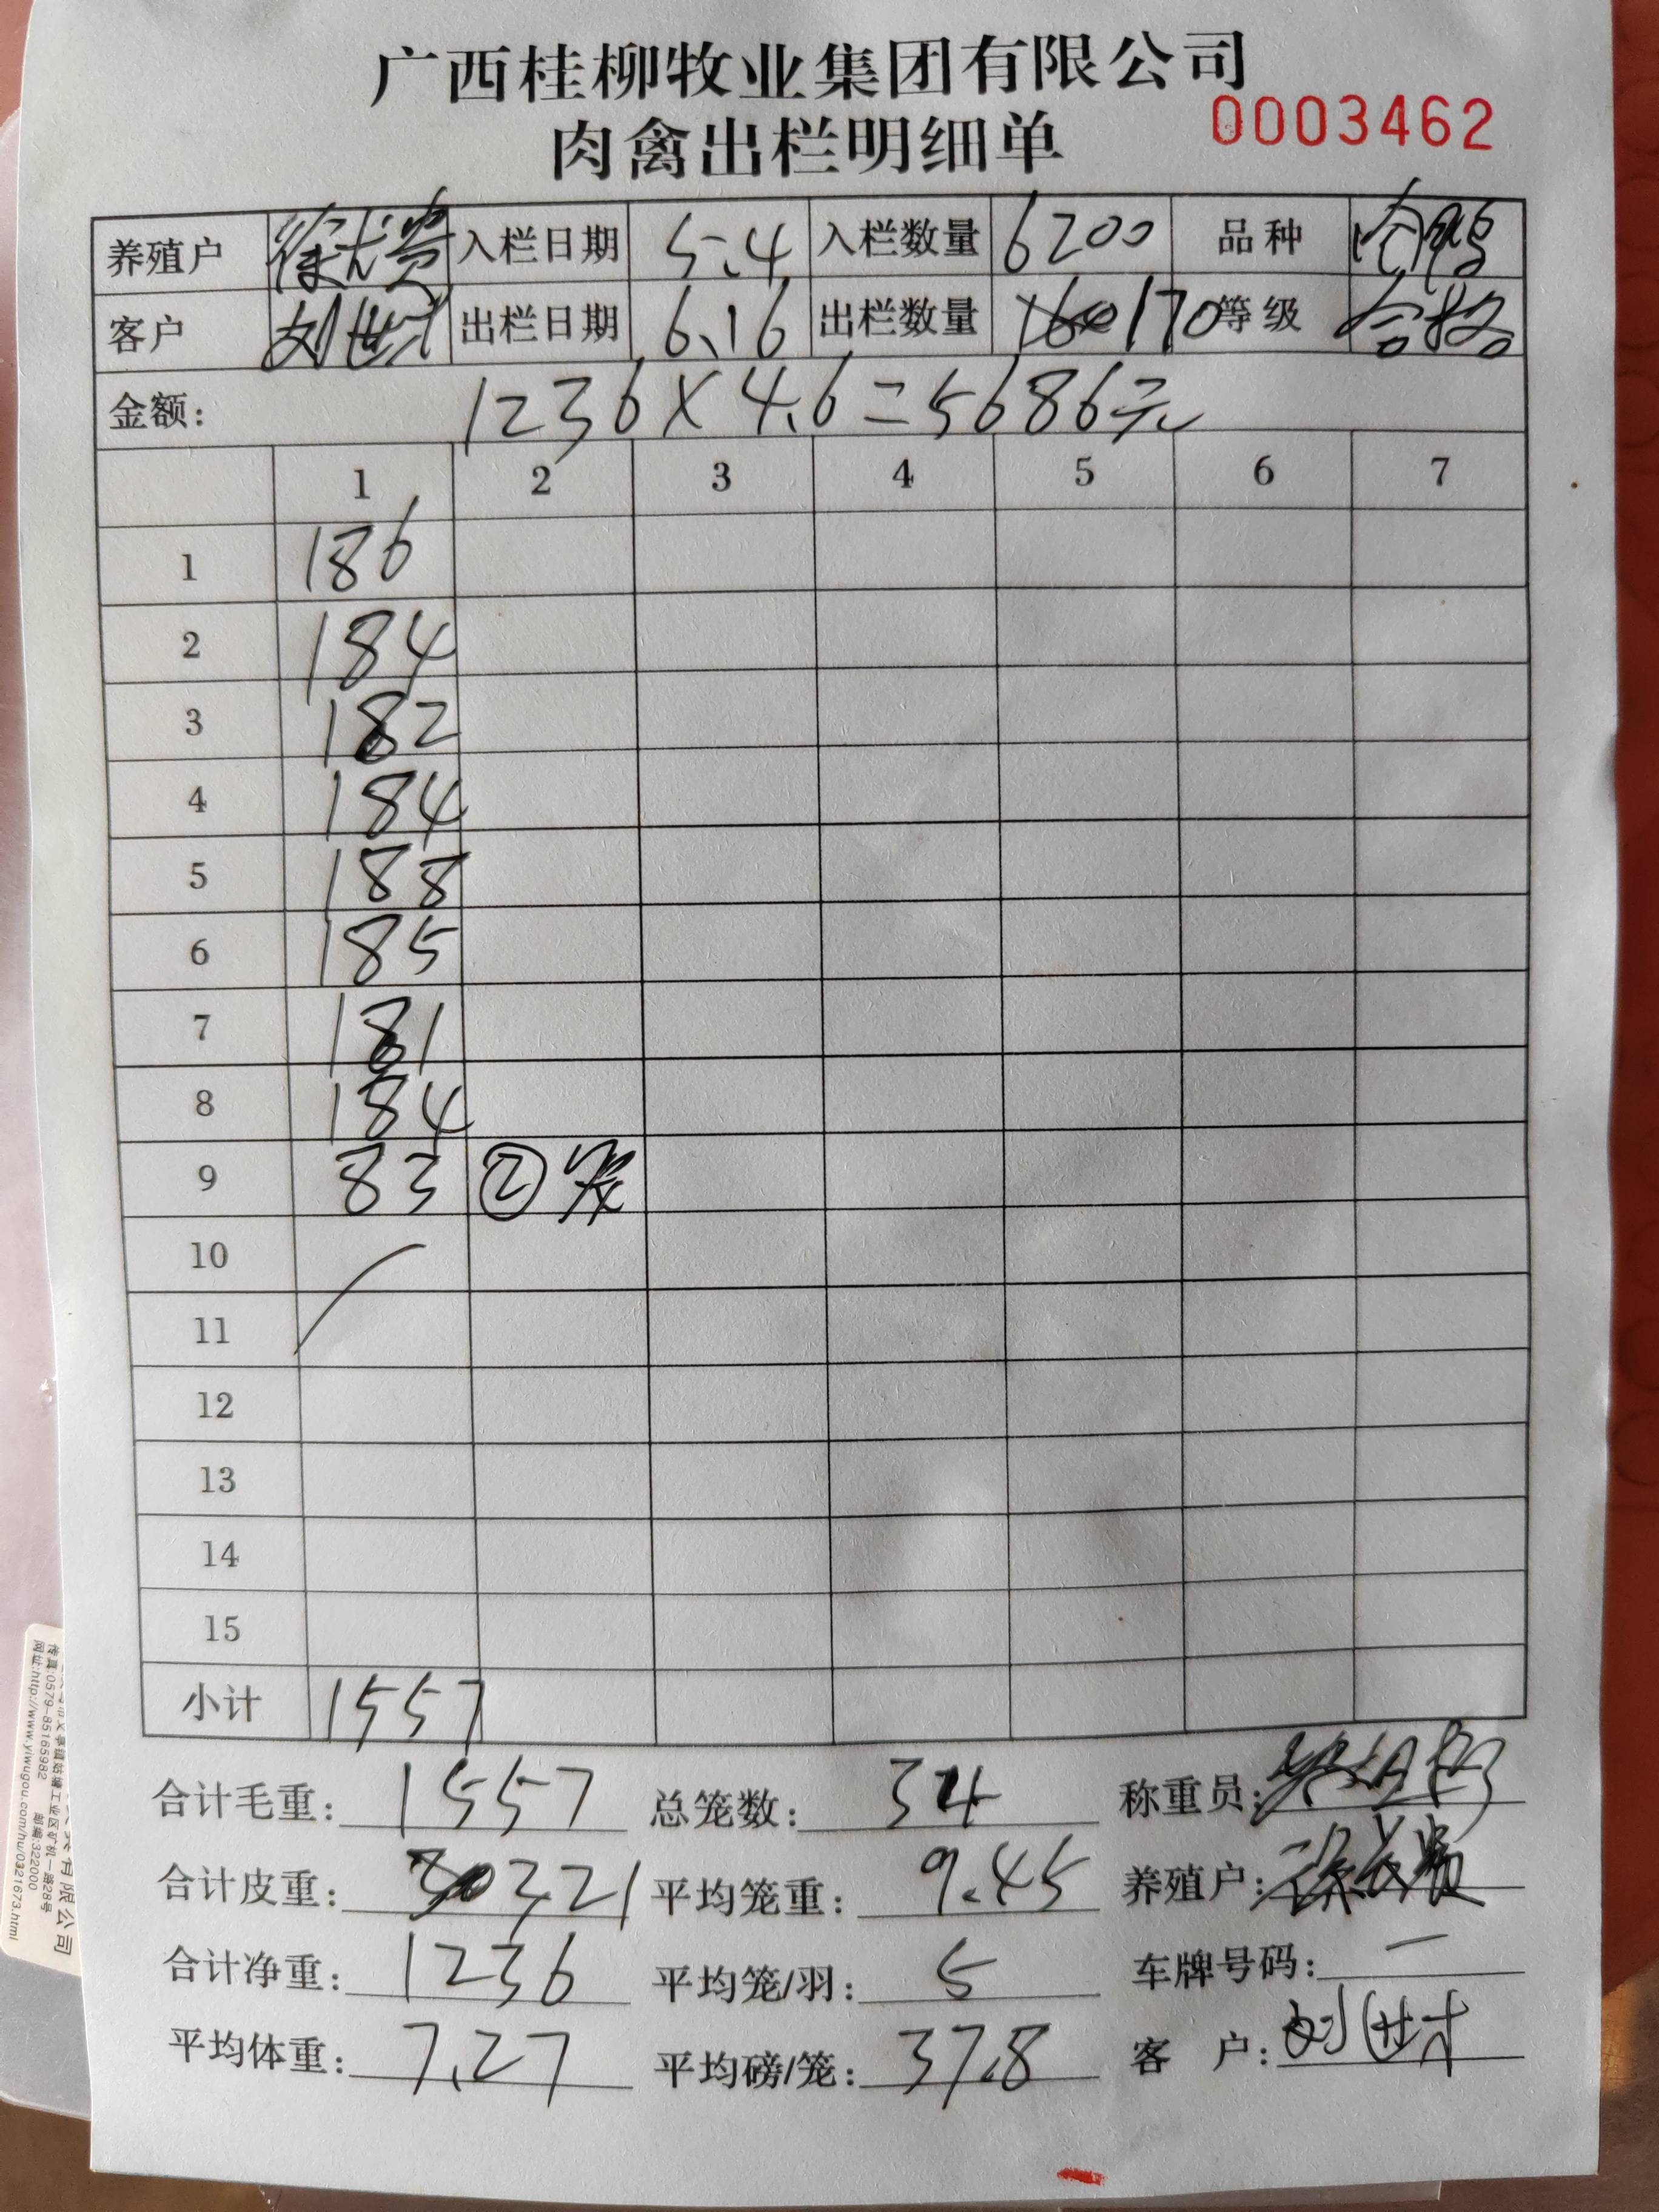 广西桂柳牧业集团有限公司
肉禽出栏明细单 0003462
养殖户 徐 贵 入栏日期 5.4 入栏数量 6200 品种
客户 刘世才 出栏日期 6.16 出栏数量 170 等级 合格
金额: 1236×4.6=5686元
1 2 3 4 5 6 7
1 186
2 184
3 182
4 184
5 188
6 185
7 181
8 184
9 83 ②笼
10
11
12
13
14
15
小计 1557
合计毛重: 1557 总笼数: 34 称重员:
合计皮重: 321 平均笼重: 9.45 养殖户: 徐 贵
合计净重: 1236 平均笼/羽: 5 车牌号码: —
平均体重: 7.27 平均磅/笼: 37.8 客 户: 刘世才
工业区矿机一路28号
传真:0579-85165982 邮编:322000
网址:http://www.yiwugou.com/hu/0321673.html
有限公司